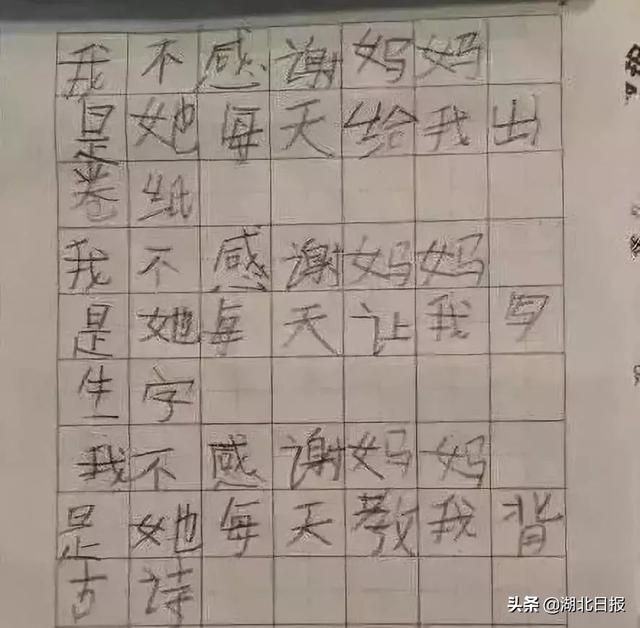 我不感谢妈妈
是她每天给我出
卷纸
我不感谢妈妈
是她每天让我写
生字
我不感谢妈妈
是她每天教我背
古诗
头条 @湖北日报